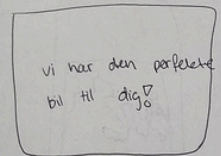 vi har den perfekte
bil til dig!